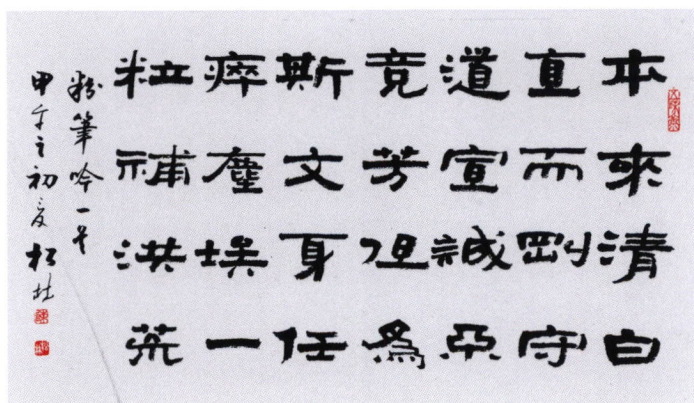 本來清白
直而剛守
道宣誠不
竞芳但為
斯文身任
瘁塵埃一
粒補洪荒
粉筆吟一首
甲午之初夏